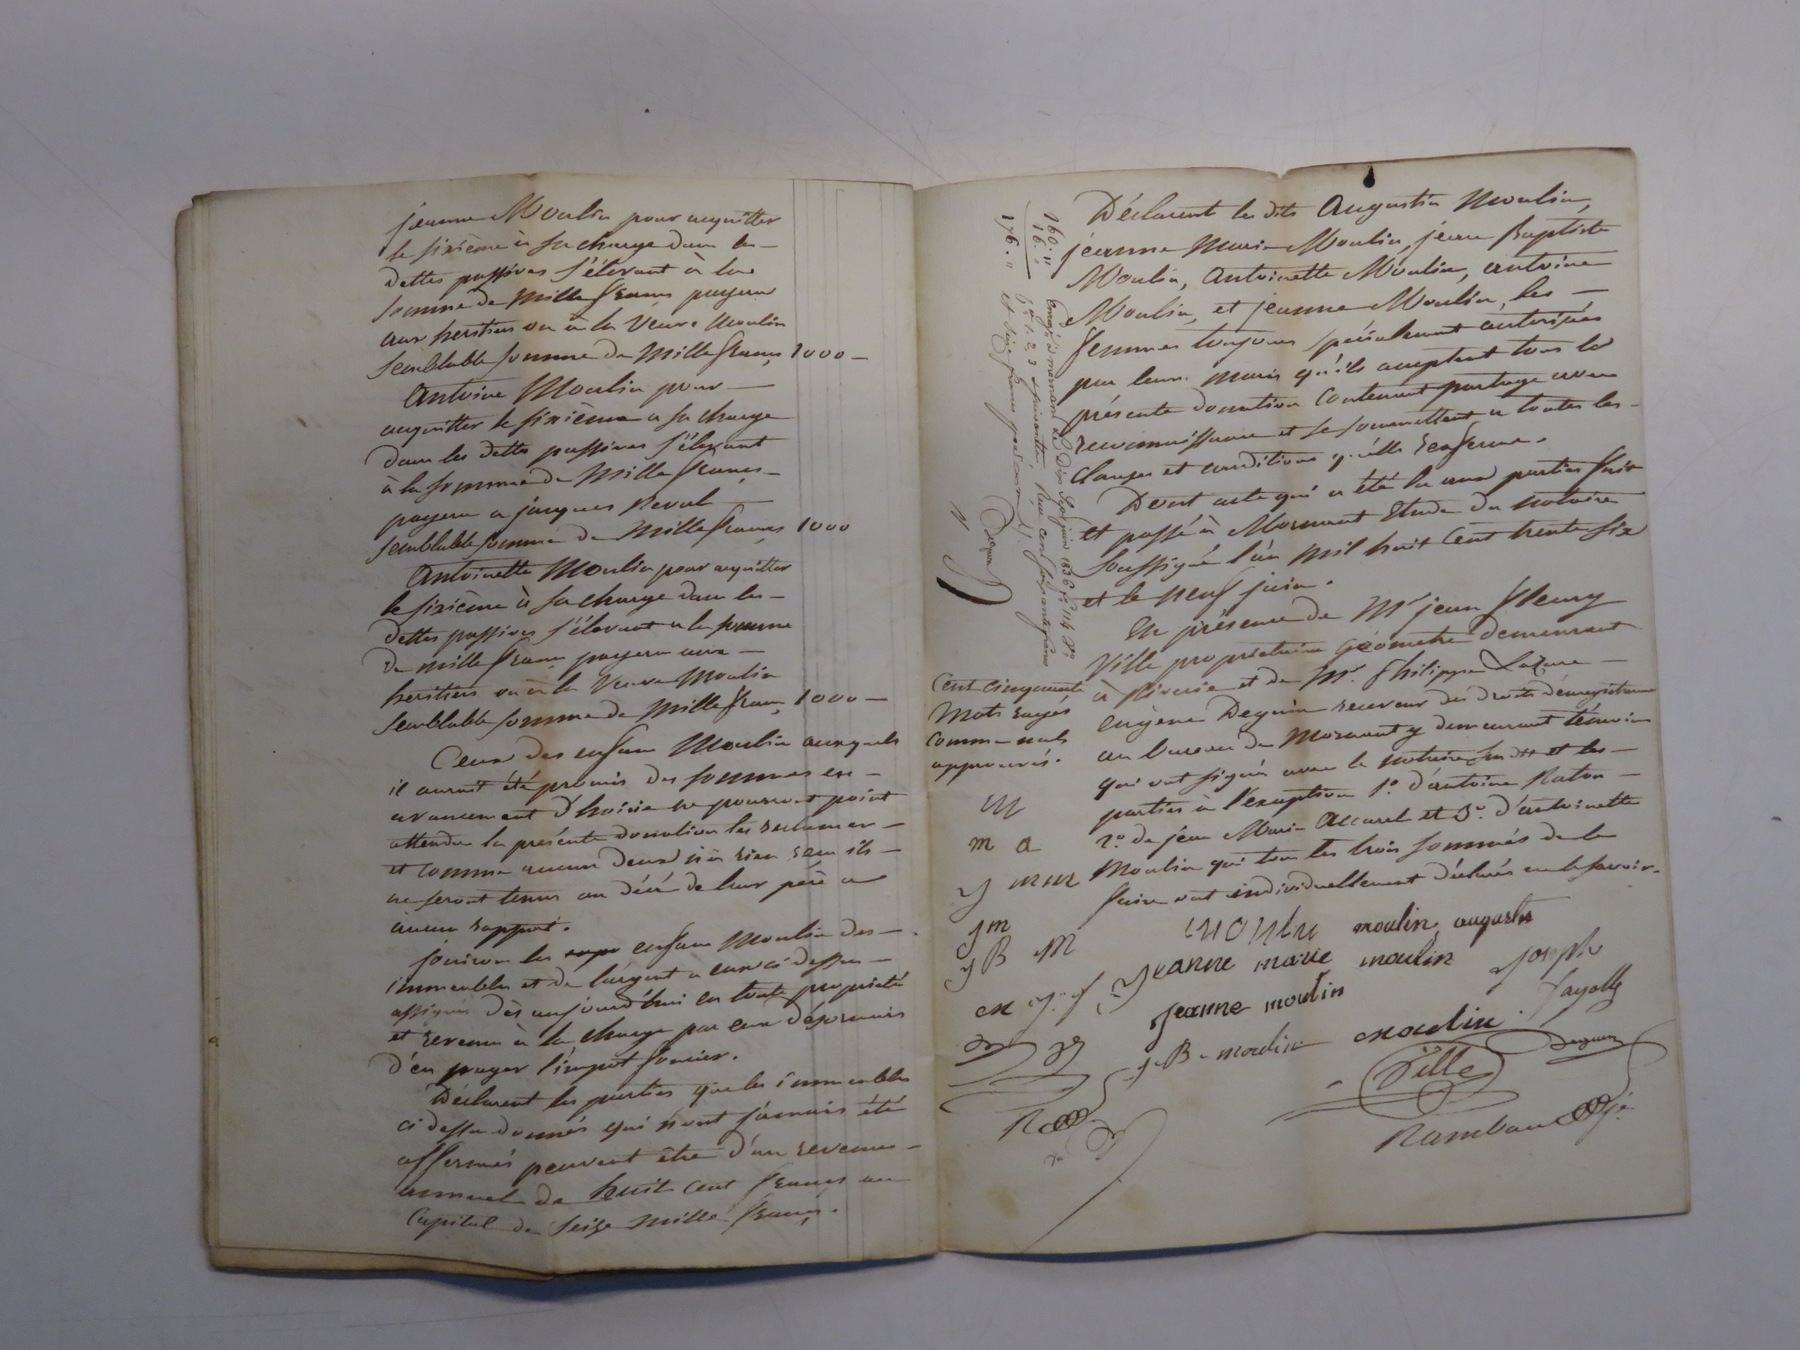 jeanne Moulin pour acquitter
le sixième à sa charge dans les
dettes passives s'élevant à la
somme de Mille francs payera
aux heritiers ou à la Veuve Moulin
semblable somme de Mille francs 1000
Antoine Moulin pour
acquitter le sixieme a sa charge
dans les dettes passives s'élevant
à la somme de Mille francs
payera a jacques Reval
semblable somme de Mille francs 1000
Antoinette Moulin pour acquitter
le sixième à sa charge dans les
dettes passives s'élevant a la somme
de mille francs payera aux
heritiers ou à la Veuve Moulin
semblable somme de Mille francs 1000
Ceux des enfans Moulin auxquels
il aurait été promis des sommes en
avancement d'hoirie ne pourront point
attendu la présente donation les reclamer
et comme aucun deux n'a rien recu ils
ne seront tenus au décès de leur père a
aucun rapport.
jouiron les enfans Moulin des
immeubles et de l'argent a eux ci dessus
assignés dès aujourd'hui en toute propriété
et revenu à la charge par eux désormais
d'en payer l'impot foncier.
Déclarent les parties que les immeubles
ci dessus donnés qui n'ont jamais été
affermés peuvent être d'un revenu
annuel de huit cent francs au
Capital de Seize Mille francs.
Déclarent les dits Augustin Moulin,
jéanne Marie Moulin, jean Baptiste
Moulin, Antoinette Moulin, antoine
Moulin, et jeanne Moulin, les
femmes toujours spécialement autorisées
par leurs maris qu'ils acceptent tous la
présente donation Contenant partage avec
reconnaissance et se soumettent a toutes les
Charges et conditions qu'elle renferme.
Dont acte qui a été lu aux parties fait
et passé à Mornant Etude du notaire
soussigné l'an mil huit Cent trente six
et le neuf juin.
En présence de Mr jean fleury
Ville propriétaire géomètre demeurant
à Riverie et de Mr. Philippe Lazare
eugène Deguin receveur des droits d'enregistrement
au bureau de Mornant y demeurant témoins
qui ont signé avec le notaire et les
parties à l'exception 1o. d'antoine Raton
2o. de jean Marie Accarel et 3o. d'antoinette
Moulin qui tous les trois sommés de le
faire ont individuellement déclarés ne le savoir.
160."
16."
176."
Cent cinquante
Mots rayés
Comme nuls
approuvés.
m a
j m m
j m
j B M
Moulin moulin auguste
jeanne marie moulin joseph
fayolle
jeanne moulin
j B moulin moulin
Ville Deguin
Rambaud